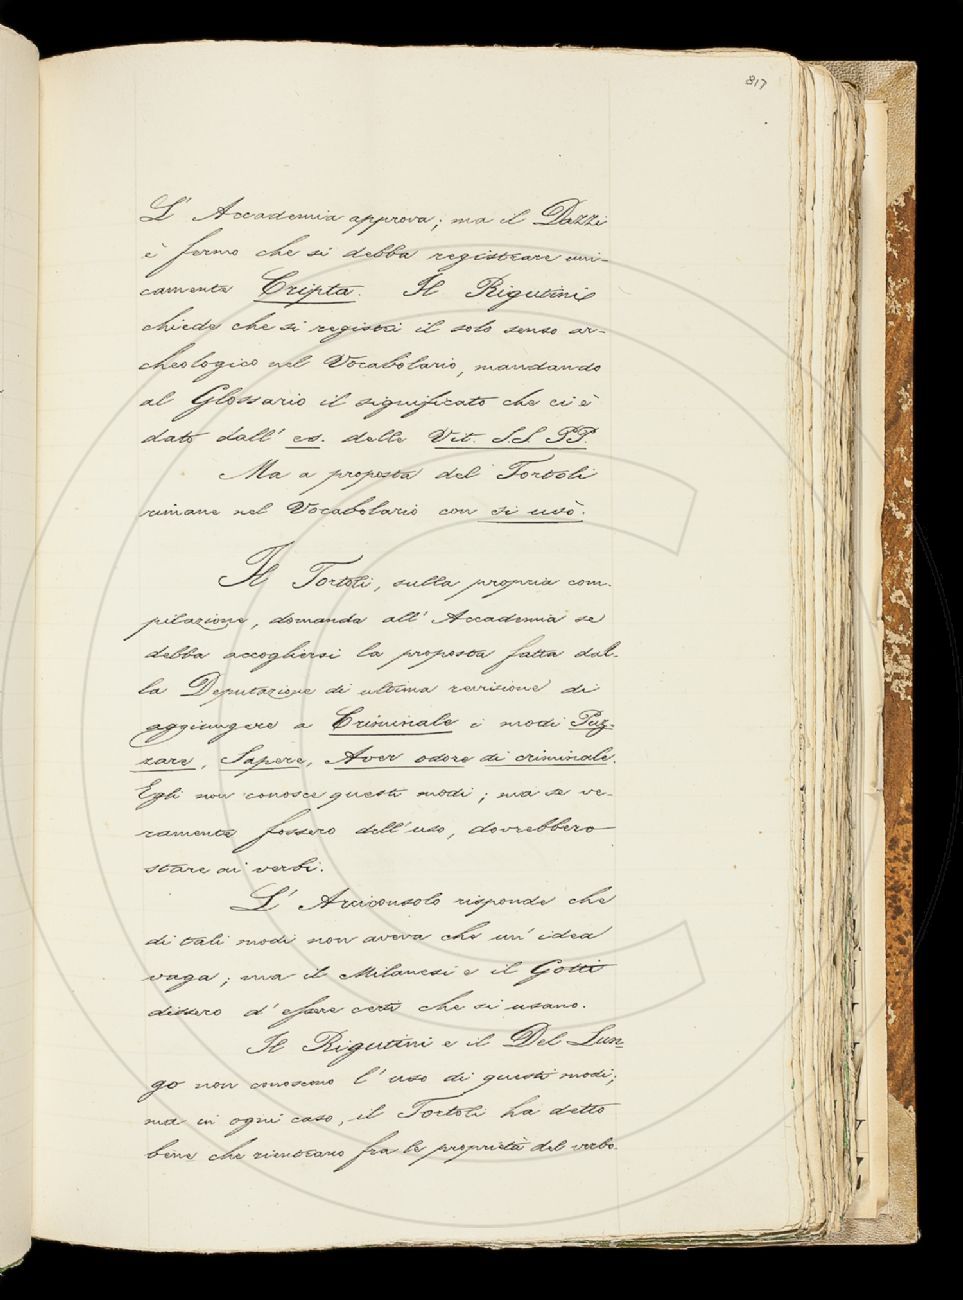 817
L' Accademia approva; ma il Dazzi
è fermo che si debba registrare uni-
camente Cripta. Il Rigutini
chiede che si registri il solo senso ar-
cheologico nel Vocabolario, mandando
al Glossario il significato che ci è
dato dall' es. delle Vit. S.S PP.
Ma a proposta del Tortoli
rimane nel Vocabolario con si usò.
Il Tortoli, sulla propria com-
pilazione, domanda all' Accademia se
debba accogliersi la proposta fatta dal-
la Deputazione di ultima revisione di
aggiungere a Criminale i modi Puz-
zare, Sapere, Aver odore di criminale.
Egli non conosce questi modi; ma se ve-
ramente fossero dell' uso, dovrebbero
stare ai verbi.
L' Arciconsolo risponde che
di tali modi non aveva che un' idea
vaga; ma il Milanesi e il Gotti
dissero d' essere certi che si usano.
Il Rigutini e il Del Lun-
go non conoscono l' uso di questi modi;
ma in ogni caso, il Tortoli ha detto
bene che rientrano fra le proprietà del verbo.